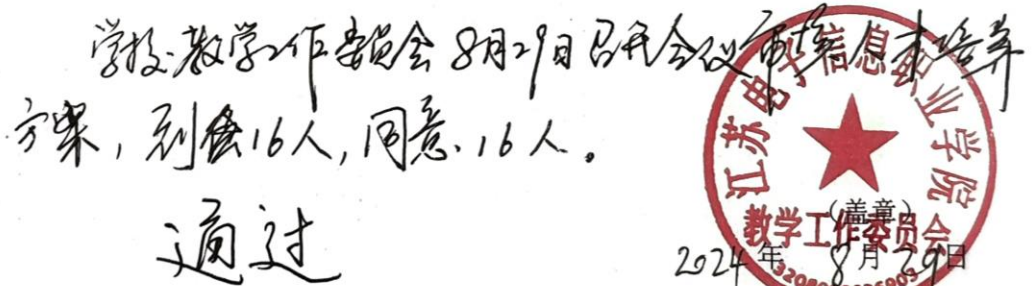 学校教学工作委员会8月29日召开会议审核人才培养
方案，到会16人，同意16人。
通过
江苏电子信息职业学院
（盖章）
教学工作委员会
2024年8月29日